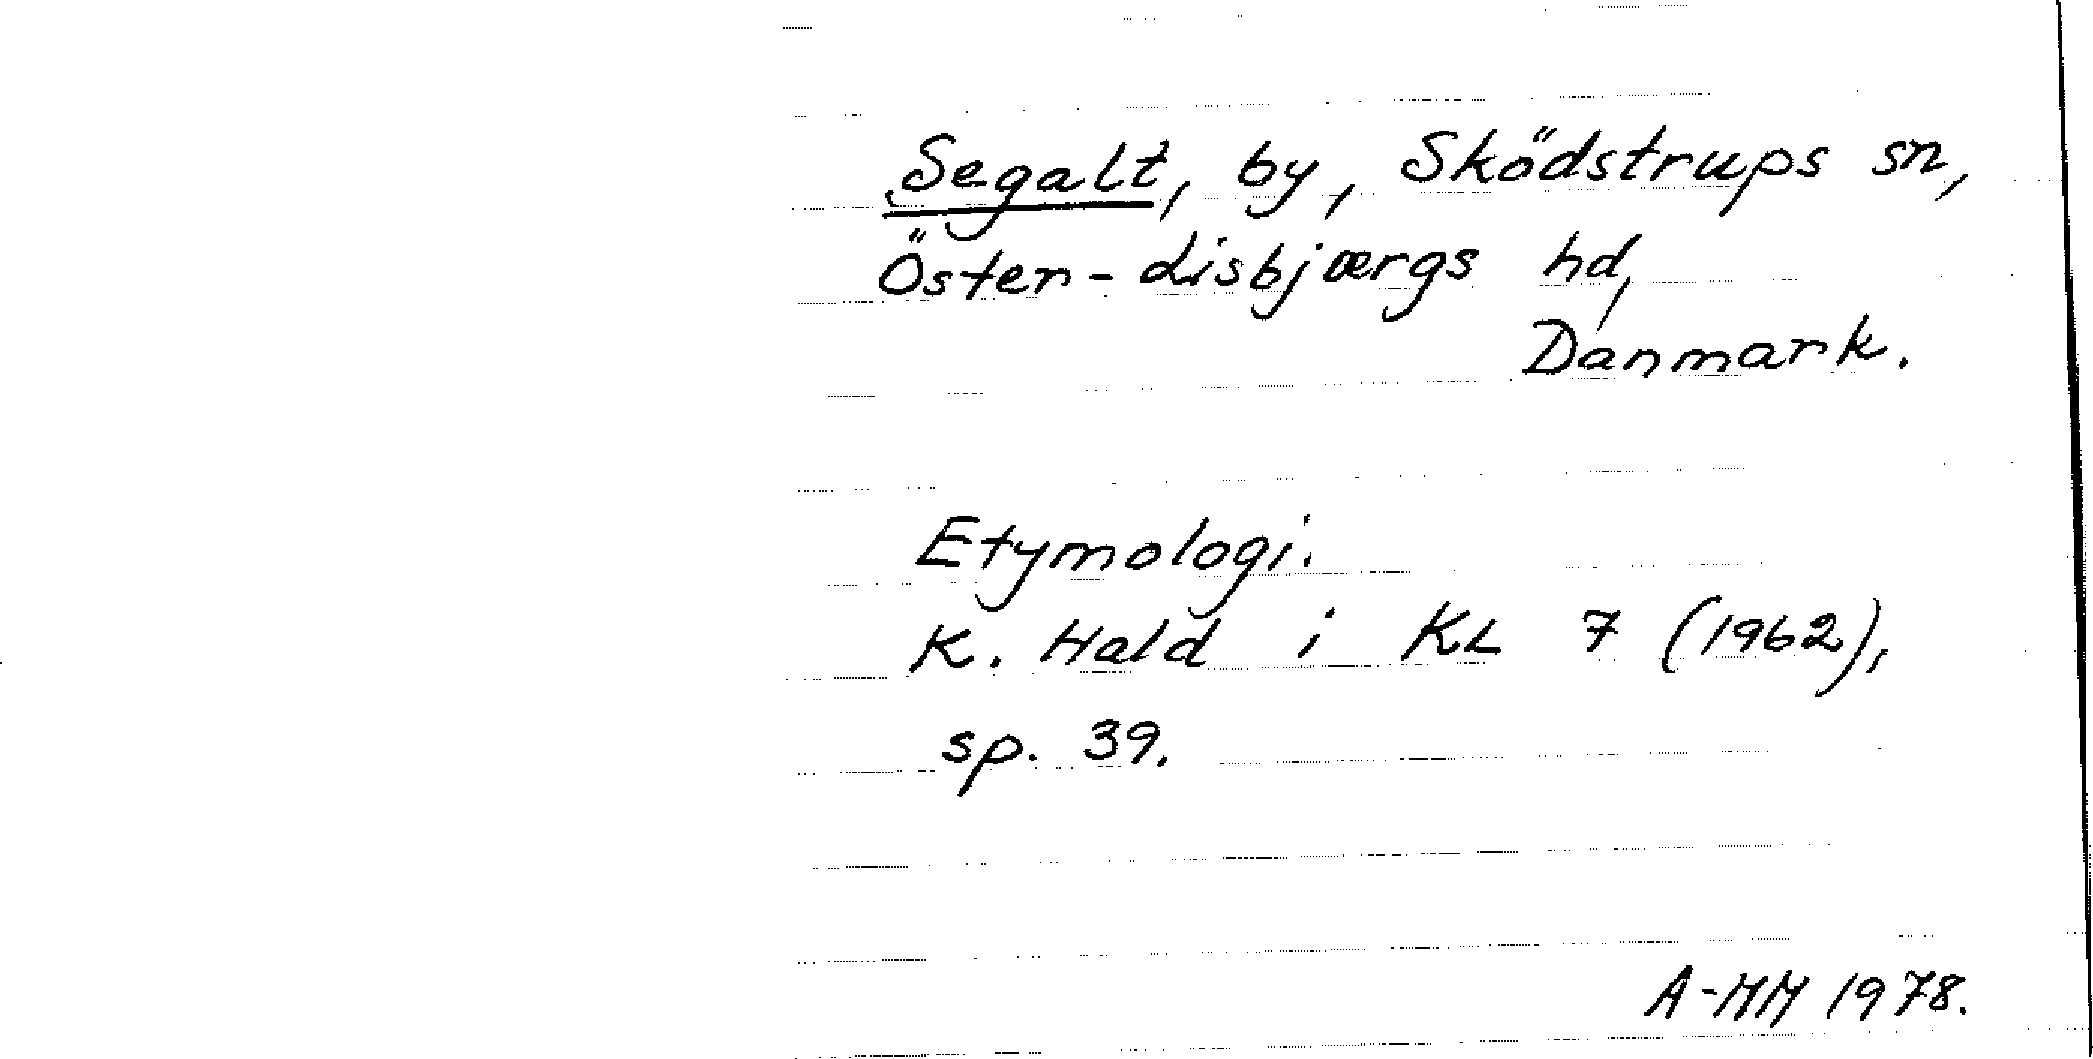 Segalt, by, Sködstrups sn,
Öster-Lisbjærgs hd,
Danmark.
Etymologi.
K. Hald i KL 7 (1962),
sp. 39.
A-MM 1978.